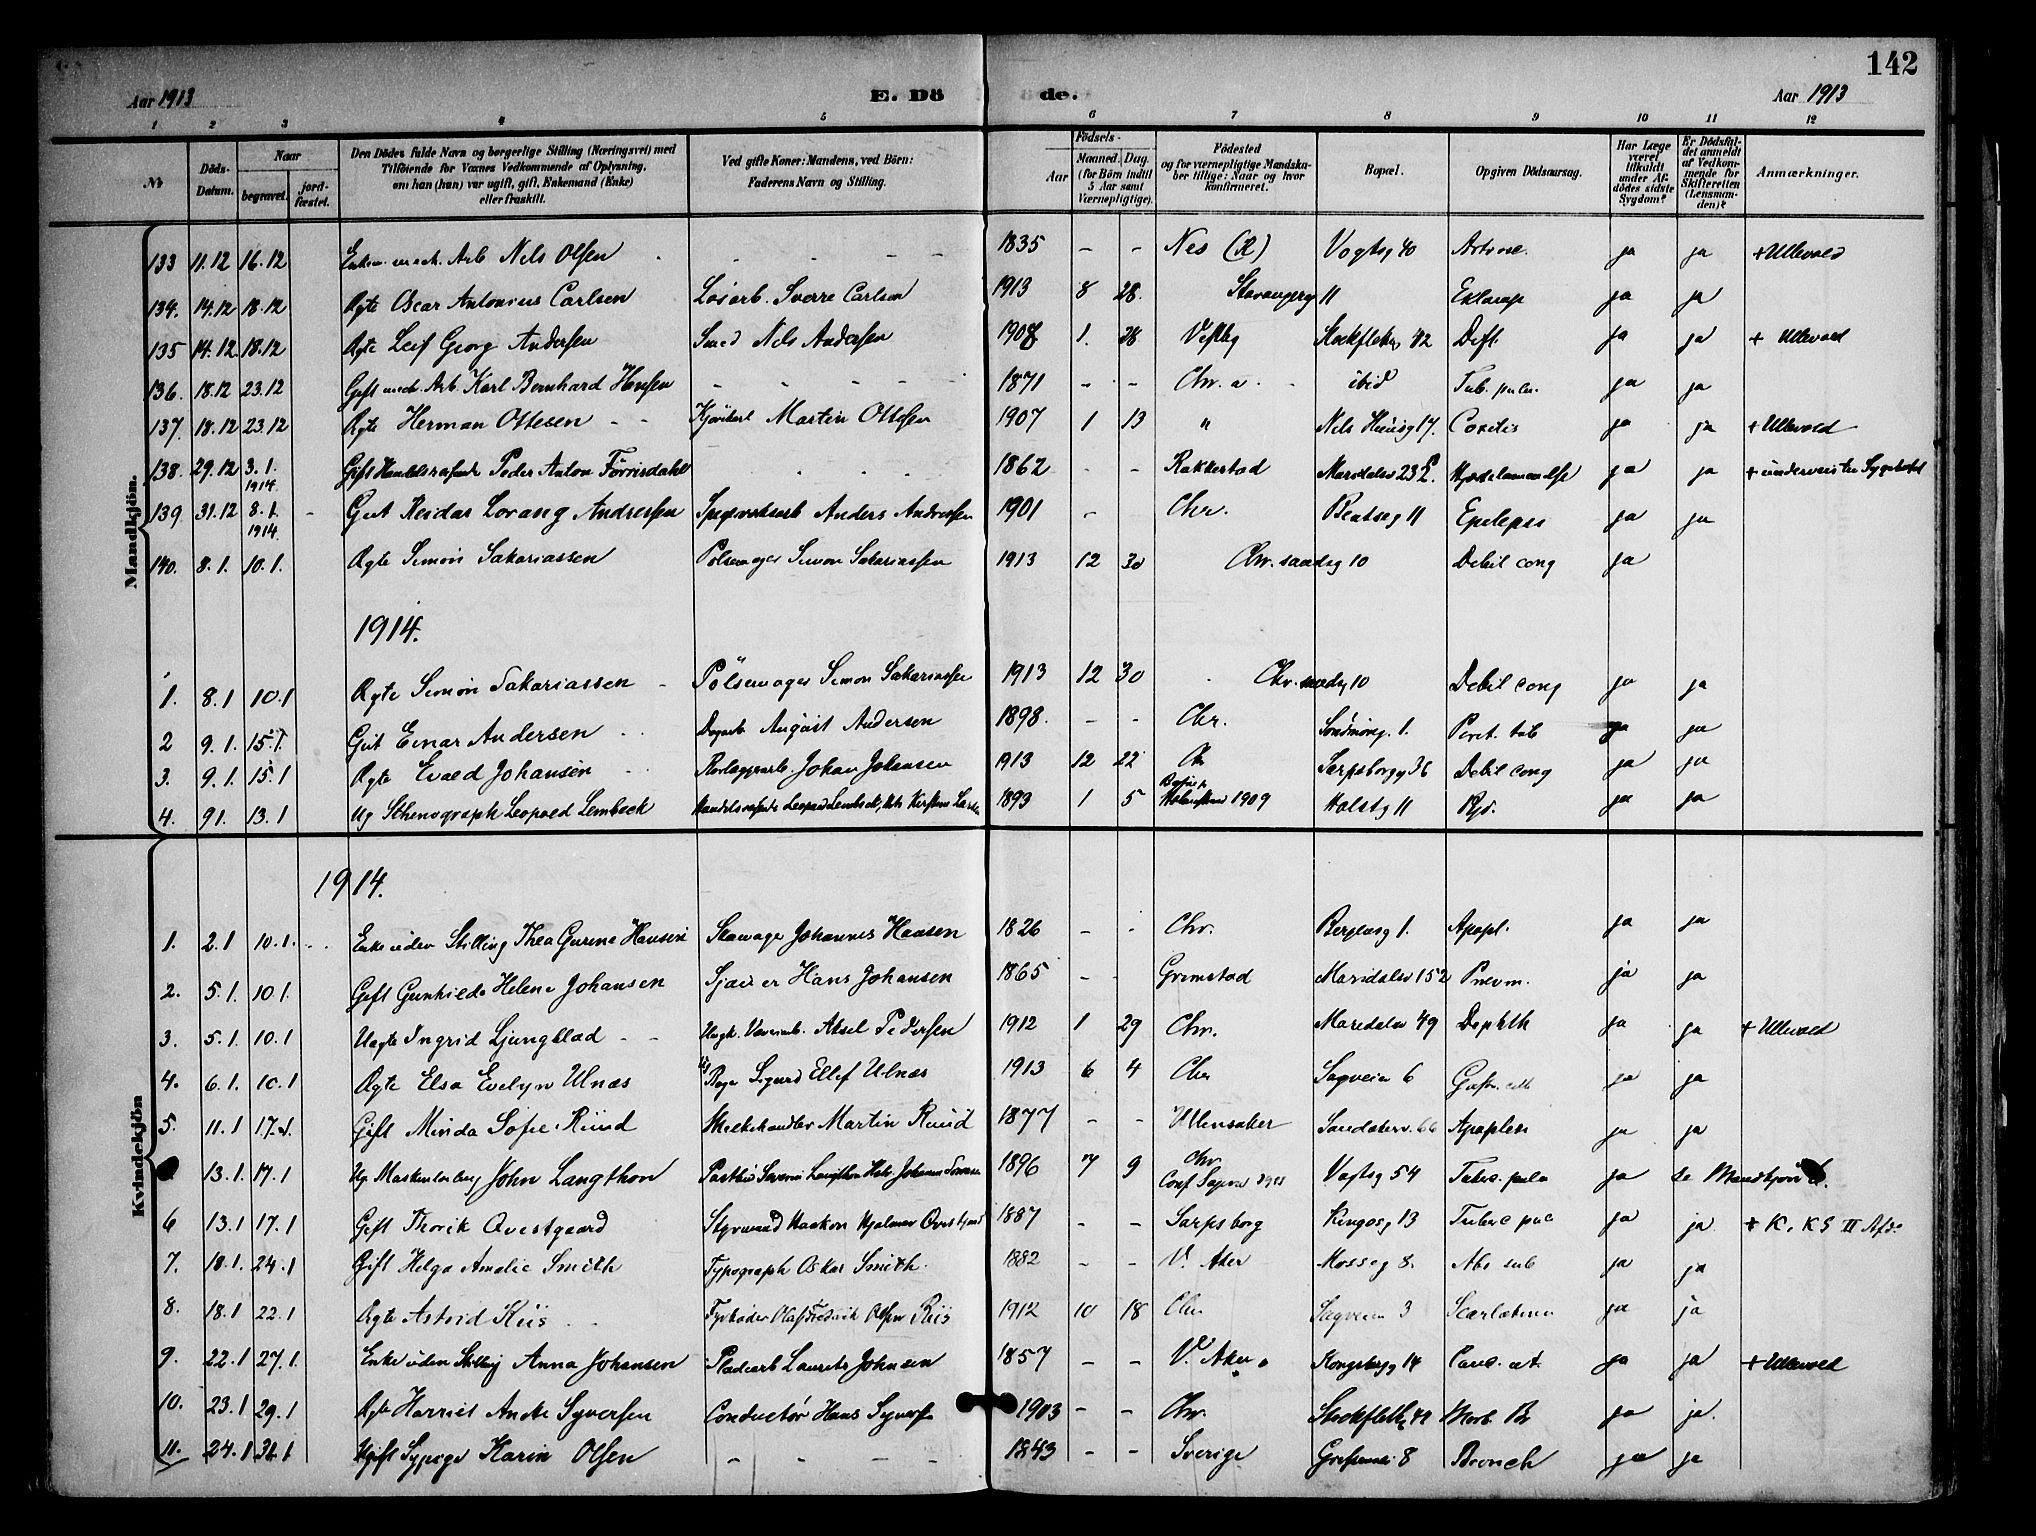 142
Aar 1913 E. Dö de. Aar 1913
1 2 3 4 5 6 7 8 9 10 11 12
№ Döds-Datum. Naar begravet. jord-fæstet. Den Dödes fulde Navn og borgerlige Stilling (Næringsvei) med Tilföiende for Voxnes Vedkommende af Oplysning, om han (hun) var ugift, gift, Enkemand (Enke) eller fraskilt. Ved gifte Koner: Mandens, ved Börn: Faderens Navn og Stilling. Födsels- Aar Maaned. Dag. (for Börn indtil 5 Aar samt Værnepligtige). Födested og for værnepligtige Mandska-ber tillige: Naar og hvor konfirmeret. Bopæl. Opgiven Dödsaarsag. Har Læge været tilkaldt under Af-dödes sidste Sygdom? Er Dödsfal-det anmeldt af Vedkom-mende for Skifteretten (Lensman-den)? Anmærkninger.
Mandkjön.
133 11.12 16.12 Nels Olsen - - - - 1835 - - Nes (R) Vogtsg 40 ja ja + Ullevold
134. 14.12 18.12 Ægte Oscar Antonius Carlsen Løsarb. Sverre Carlsen 1913 8 28. Stavangerg 11 Eklamp ja ja
135 14.12 18.12 Ægte Leif Georg Andersen Smed Nels Andersen 1908 1. 28 Vestby 42 Dift. ja ja + Ullevold
136. 18.12 23.12 Gift Arb. Karl Bernhard Hansen - - - - - 1871 - - Chr. a. ibid Tub. pulm. ja ja
137. 18.12 23.12 Ægte Herman Ottesen - - Martin Ottesen 1907 1 13 " Nels 17. Coxitis ja ja + Ullevold
138. 29.12 3.1. 1914. Gift Peder Anton Förrisdahl 1862 - - Rakkestad Maridalsv 23 ja ja
139 31.12 8.1. 1914. - Gut Reidar Lorang Andressen Anders Andressen 1901 - Chr. 11 Epilepsi ja ja
140. 8.1. 10.1. Ægte Simon Sakariassen Pölsemager Simon Sakariassen 1913 12 30 Chr. sandsg 10 Debil cong ja
1914.
1. 8.1 10.1 Ægte Simon Sakariassen - Pölsemager Simon Sakariassen 1913 12 30 Chr. sandsg 10 Debil cong ja ja
2 9.1. 15.1. Gut Einar Andersen Dagarb August Andersen 1898. - - Chr. 1. Perit. tub ja ja
3. 9.1. 15.1 Ægte Evald Johansen Johan Johansen 1913 12 22 Sarpsborgg 36 Debil cong ja ja
4. 9.1. 13.1 Ug Sthenograph Leopold Lembeck Leopold Lembeck, 1893 1 5 1909 Holstg 11 ja ja
Kvindekjön
1914.
1. 2.1 10.1. Enke uden Stilling Thea Gurine Hansen Johannes Hansen 1826 - - Chr. Bergensg 1. Apopl. ja ja
2. 5.1. 10.1. Gift Gunhilde Helene Johansen Sjauer Hans Johansen 1865 - - Grimstad Maridalsv 152 Pneum. ja ja
3. 5.1. 10.1 Uægte Ingrid Ljungblad - - Aksel Pedersen 1912 1 29 Chr. Maridalsv 49 Diphth ja ja + Ullevold
4. 6.1. 10.1 Ægte Elsa Evelyn Ulnæs Sigurd Ellef Ulnæs 1913 6 4 Chr Sagveien 6 ja ja
5. 11.1 17.1. Gift Minda Sofie Ruud Melkehandler Martin Ruud 1877 - - Ullensaker Sandakerv. 66 Apoplexi ja ja
13.1. 17.1 Ug John Langthon 1896 7 9 Chr Conf Sagene 1911 Vogtsg 54 Tuberc. pulm ja se Mandkjön
6 13.1 17.1 Gift Thorik Qvestgaard Styrmand Haakon Hjalmar Qvestgaard 1887 - - Sarpsborg Kingosg 13 Tuberc pul ja ja + K. K S II Afd.
7. 18.1. 24.1 Gift Helga Amalie Smith Typograph Oskar Smith. 1882 - - V. Aker Mosseg 8. ja ja
8. 18.1 22.1 Ægte Astrid Riis Fyrbøder Olaf Fredrik Olsen Riis 1912 10 18 Chr Sagveien 3 Scarlatina ja ja
9. 22.1 27.1. Enke uden Stilling Anna Johansen Laurits Johnsen 1857 - - V. Aker Kongsbergg 14 Canc. ut. ja ja + Ullevold
10. 23.1 29.1 Ægte Harriet Syversen Conductør Hans Syversen 1903 - - Chr. 49 Morb. Br ja ja.
11. 24.1 31.1 Ugift Sypige Karin Olsen - - - - 1843 - - Sverige Grefsenvei 8 Bronch ja ja